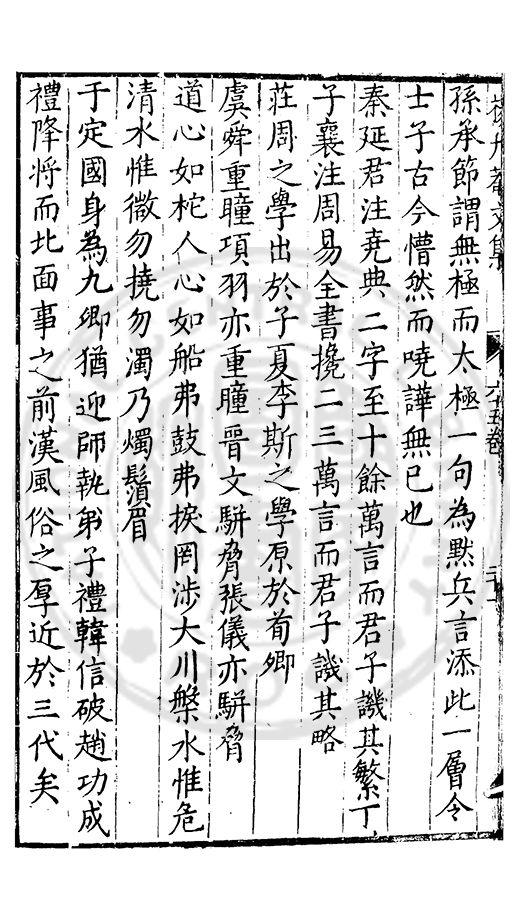 孫承節謂無極而太極一句為黙兵言添此一層令
士子古今懵然而嘵譁無已也
秦延君注堯典二字至十餘萬言而君子譏其繁丁
子襄注周易全書攙二三萬言而君子譏其略
莊周之學出於子夏李斯之學原於荀卿
虞舜重瞳項羽亦重瞳晋文騈脅張儀亦騈脅
道心如柁人心如船弗鼓弗捩罔涉大川槃水惟危
清水惟微勿撓勿濁乃燭鬚眉
于定國身為九卿猶迎師執弟子禮韓信破趙功成
禮降將而北面事之前漢風俗之厚近於三代矣